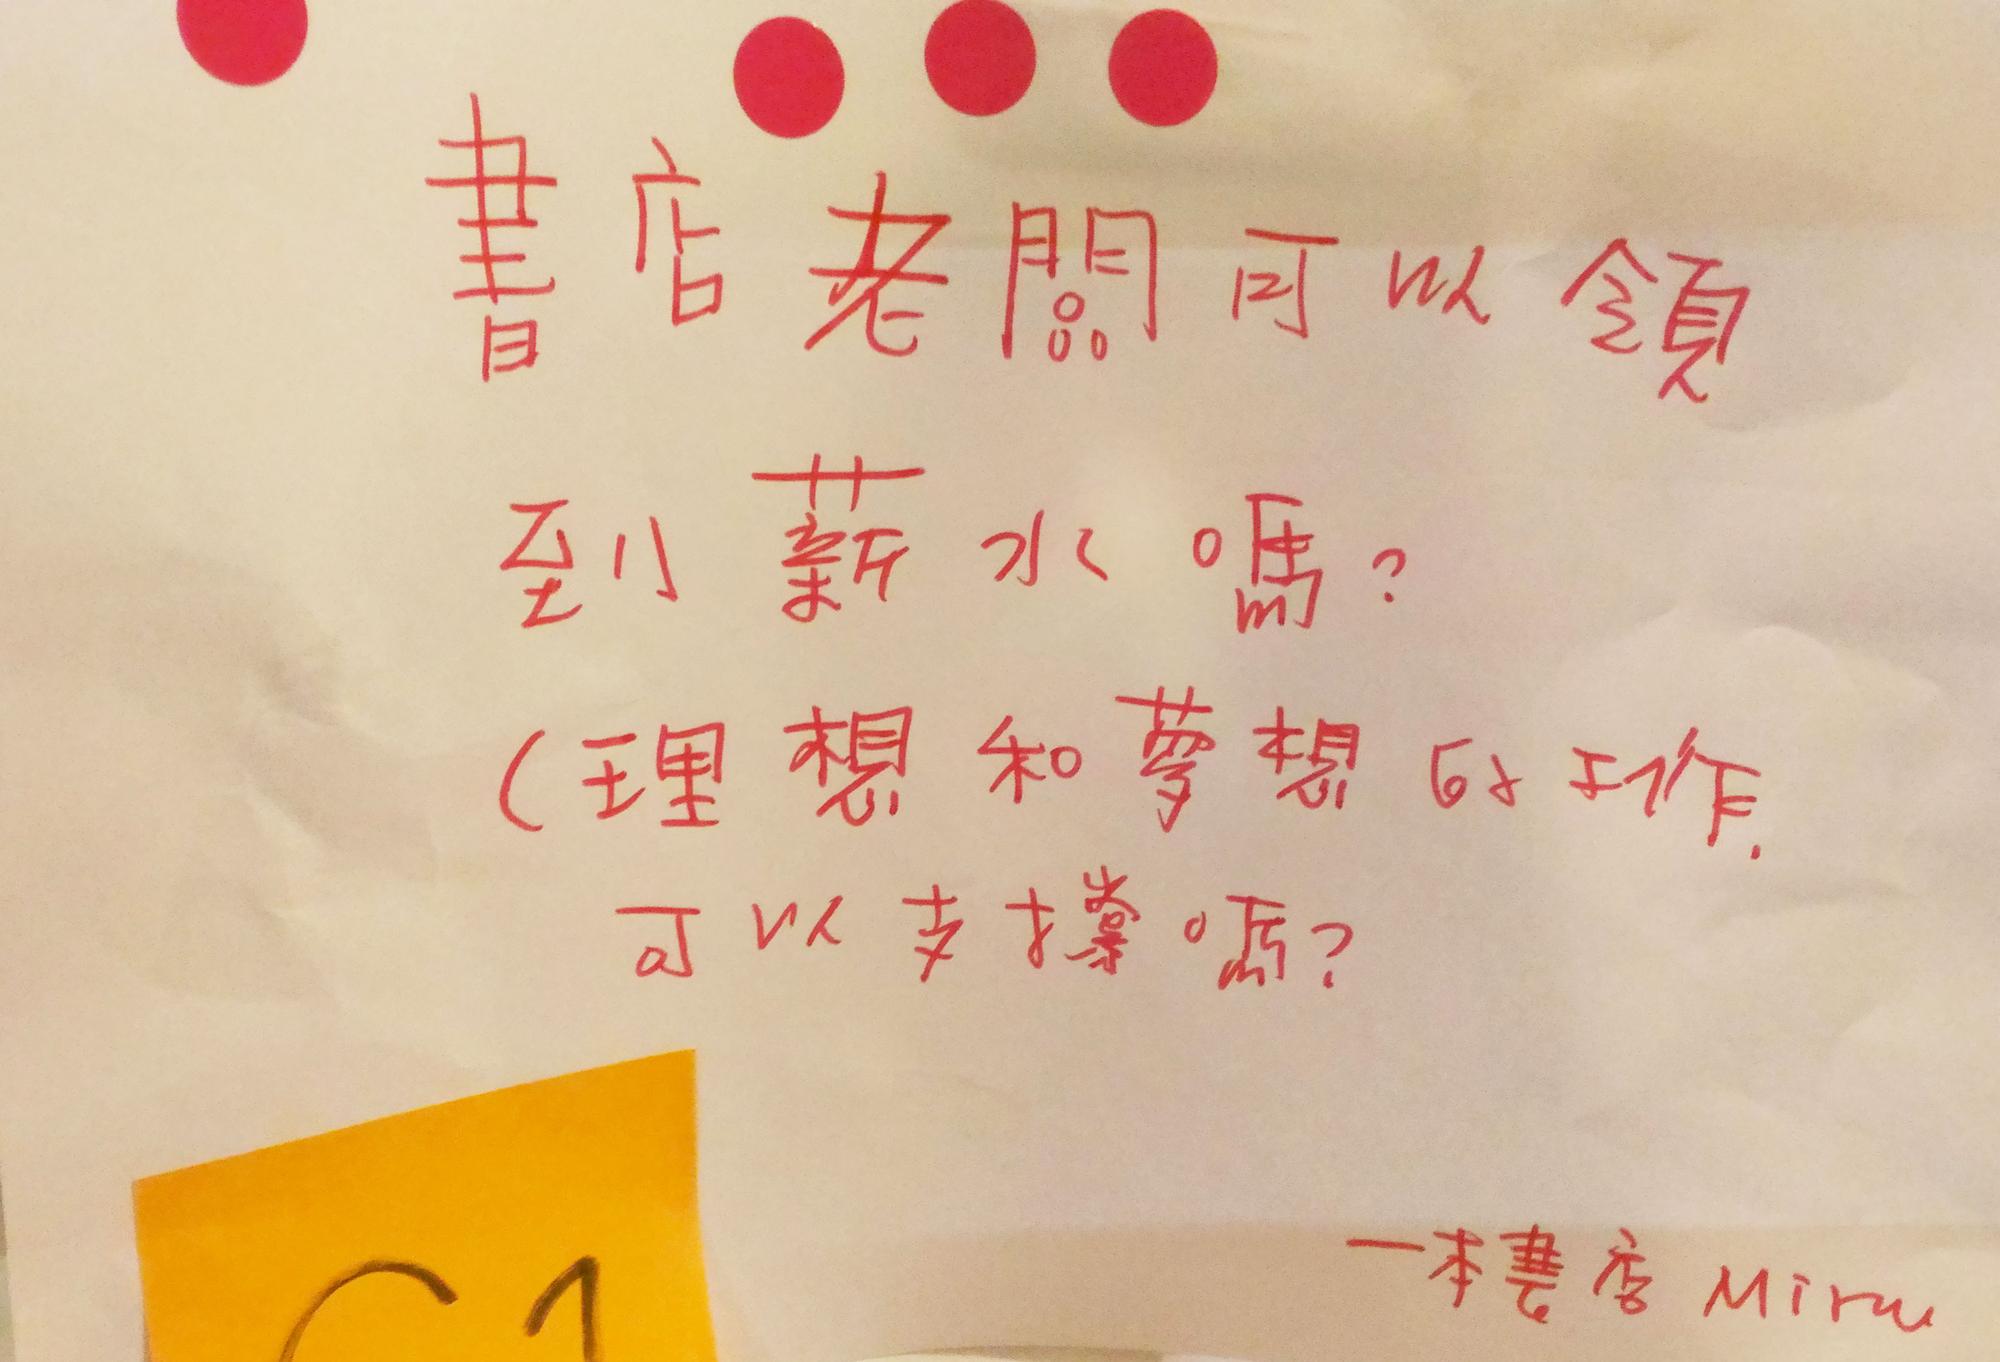 書店老闆可以領
到薪水嗎?
(理想和夢想的工作.
可以支撐嗎?
一本書店 Miru